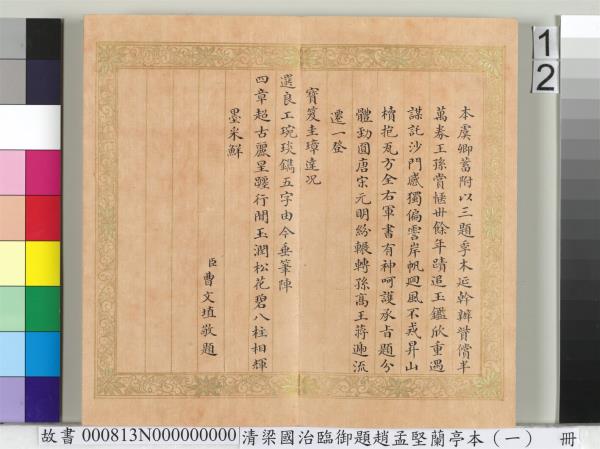 本虞卿蓄附以三題季木延幹辦貲償半
萬券王孫賞愜廿餘年蹟追玉鑑欣重遇
謀託沙門感獨偏霅岸帆迴風不戒昇山
櫝抱瓦方全右軍書有神呵護承旨題分
體勁圓唐宋元明紛輾轉孫高王蔣遞流
遷一登
寶笈圭璋達况
選良工琬琰鐫五字由今垂筆陣
四章超古麗星躔行閒玉潤松花碧八柱相輝
墨采鮮
臣曹文埴敬題
12
故書 000813N000000000 清梁國治臨御題趙孟堅蘭亭本（一） 冊